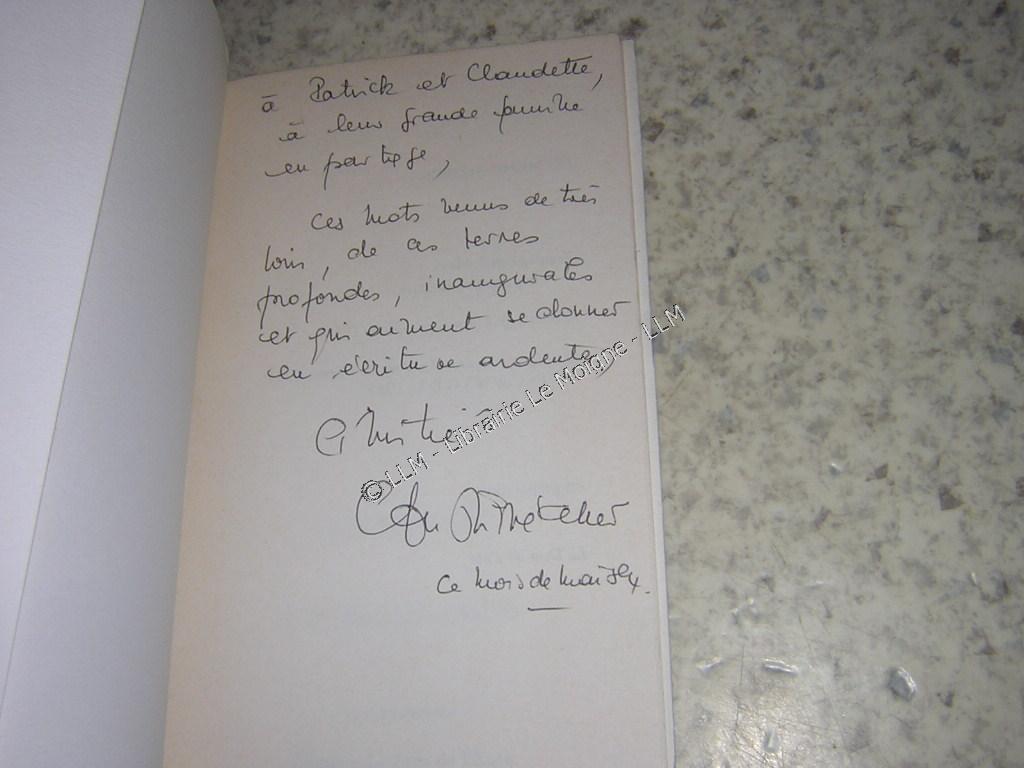 à Patrick et Claudette,
à leur grande famille
en partage,
Ces mots venus de très
loin, de ces terres
profondes, inaugurales
et qui aiment se donner
en écriture ardente
© LLM - Librairie Le Moigne - LLM
ce mois de mai